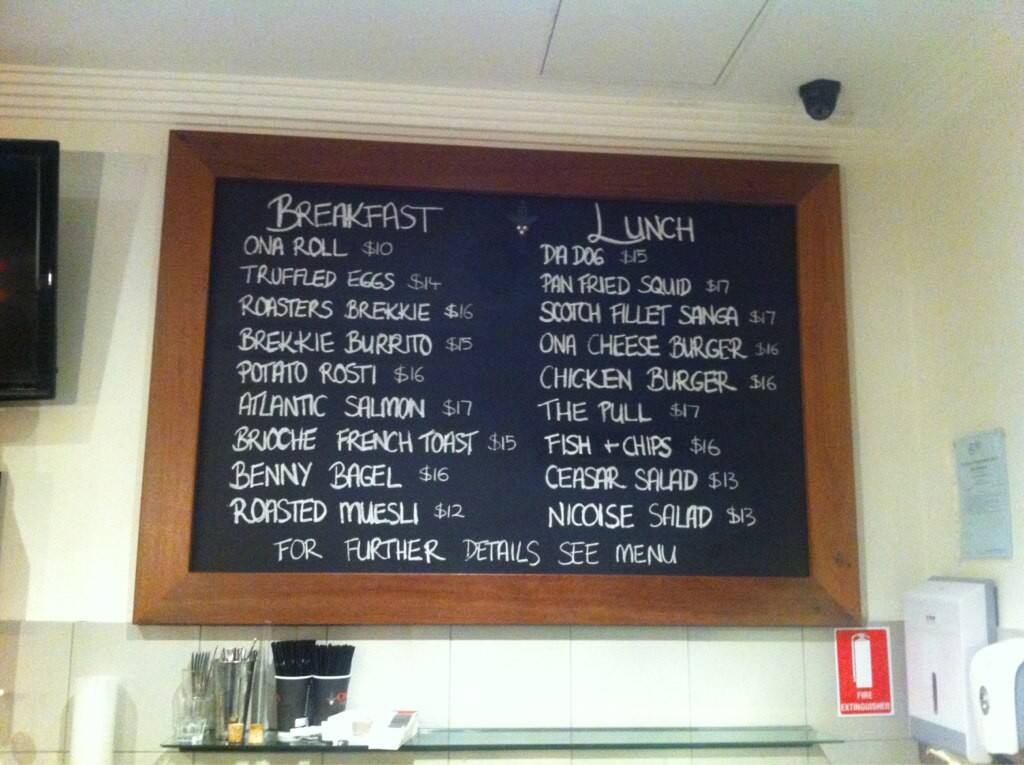 BREAKFAST
ONA ROLL $10
TRUFFLED EGGS $14
ROASTERS BREKKIE $16
BREKKIE BURRITO $15
POTATO ROSTI $16
ATLANTIC SALMON $17
BRIOCHE FRENCH TOAST $15
BENNY BAGEL $16
ROASTED MUESLI $12
LUNCH
DA DOG $15
PAN FRIED SQUID $17
SCOTCH FILLET SANGA $17
ONA CHEESE BURGER $16
CHICKEN BURGER $16
THE PULL $17
FISH + CHIPS $16
CEASAR SALAD $13
NICOISE SALAD $13
FOR FURTHER DETAILS SEE MENU
FIRE
EXTINGUISHER